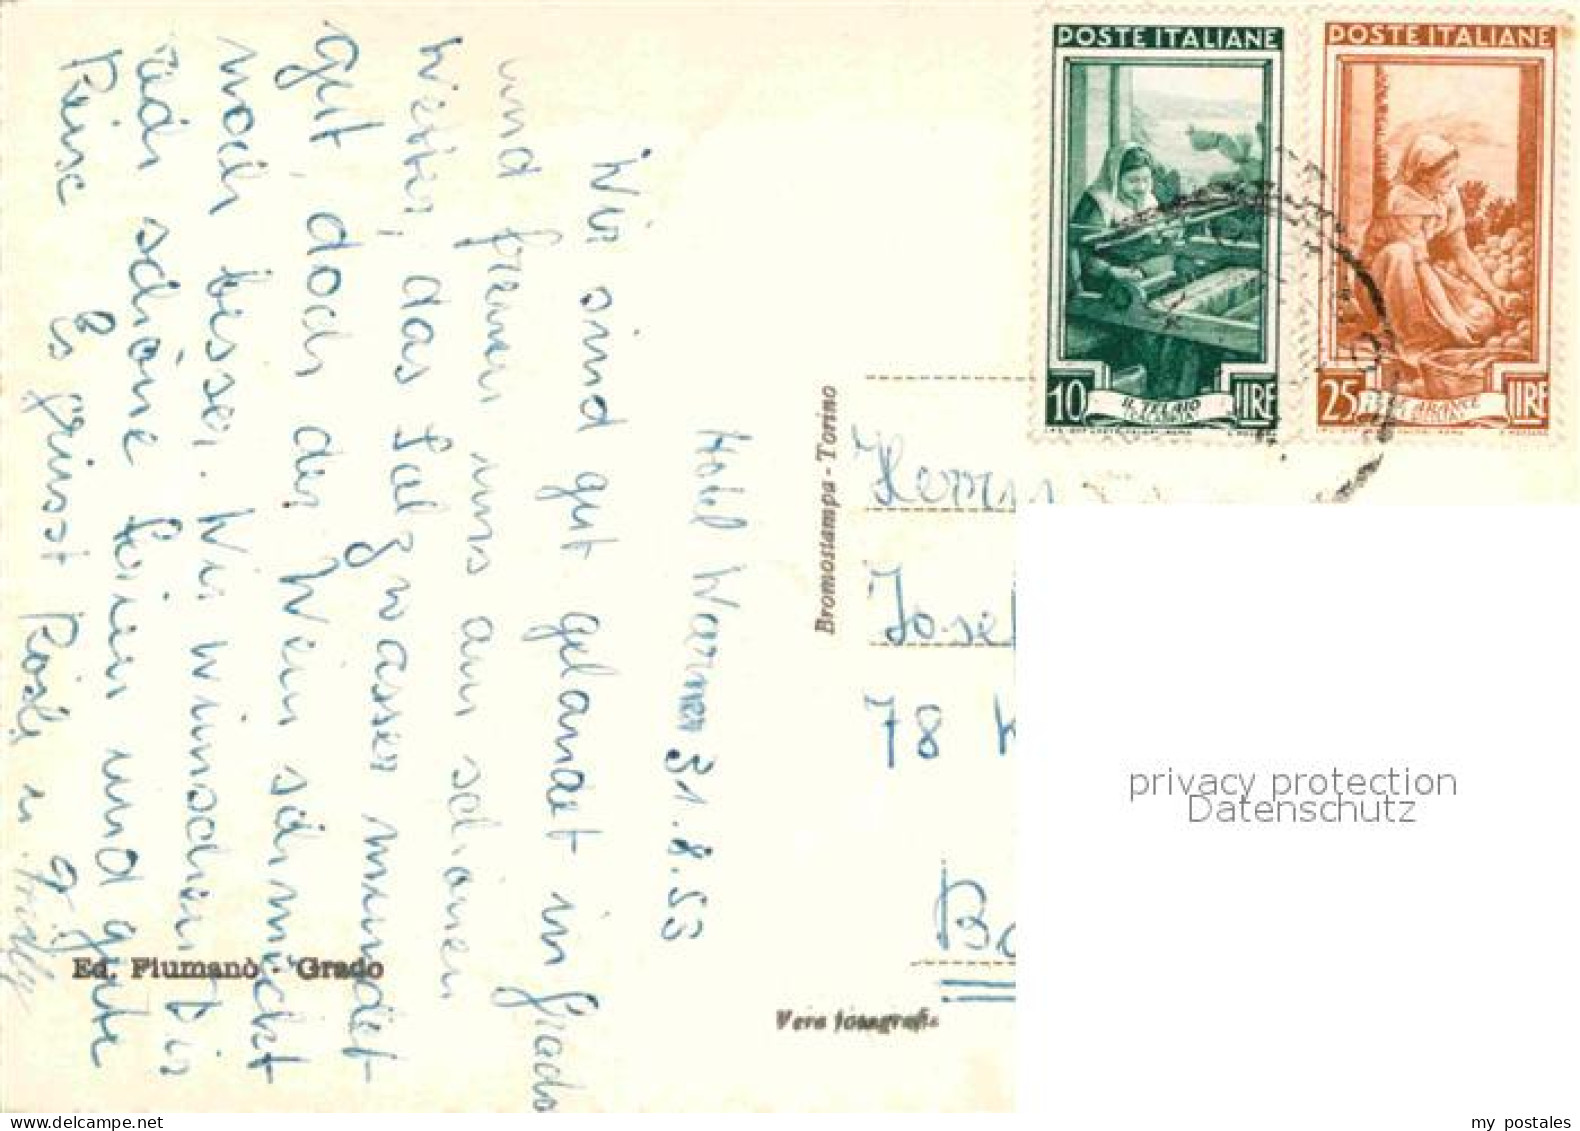 Hotel Warner 31.8.53
Wir sind gut gelandet in Grado
und freuen uns am schönen
Wetter, das Salzwasser mundet
gut, doch der Wein schmeckt
noch besser. Wir wünschen Dir
auch schöne Ferien und gute
Reise Es grüsst Rösle u.
Ed. Fiumanò - Grado
Vera fotografia
Bromostampa - Torino
POSTE ITALIANE
10 LIRE
IL TELAIO
POSTE ITALIANE
25 LIRE
ARANCE
Herrn
Josef
78
privacy protection
Datenschutz
my postales